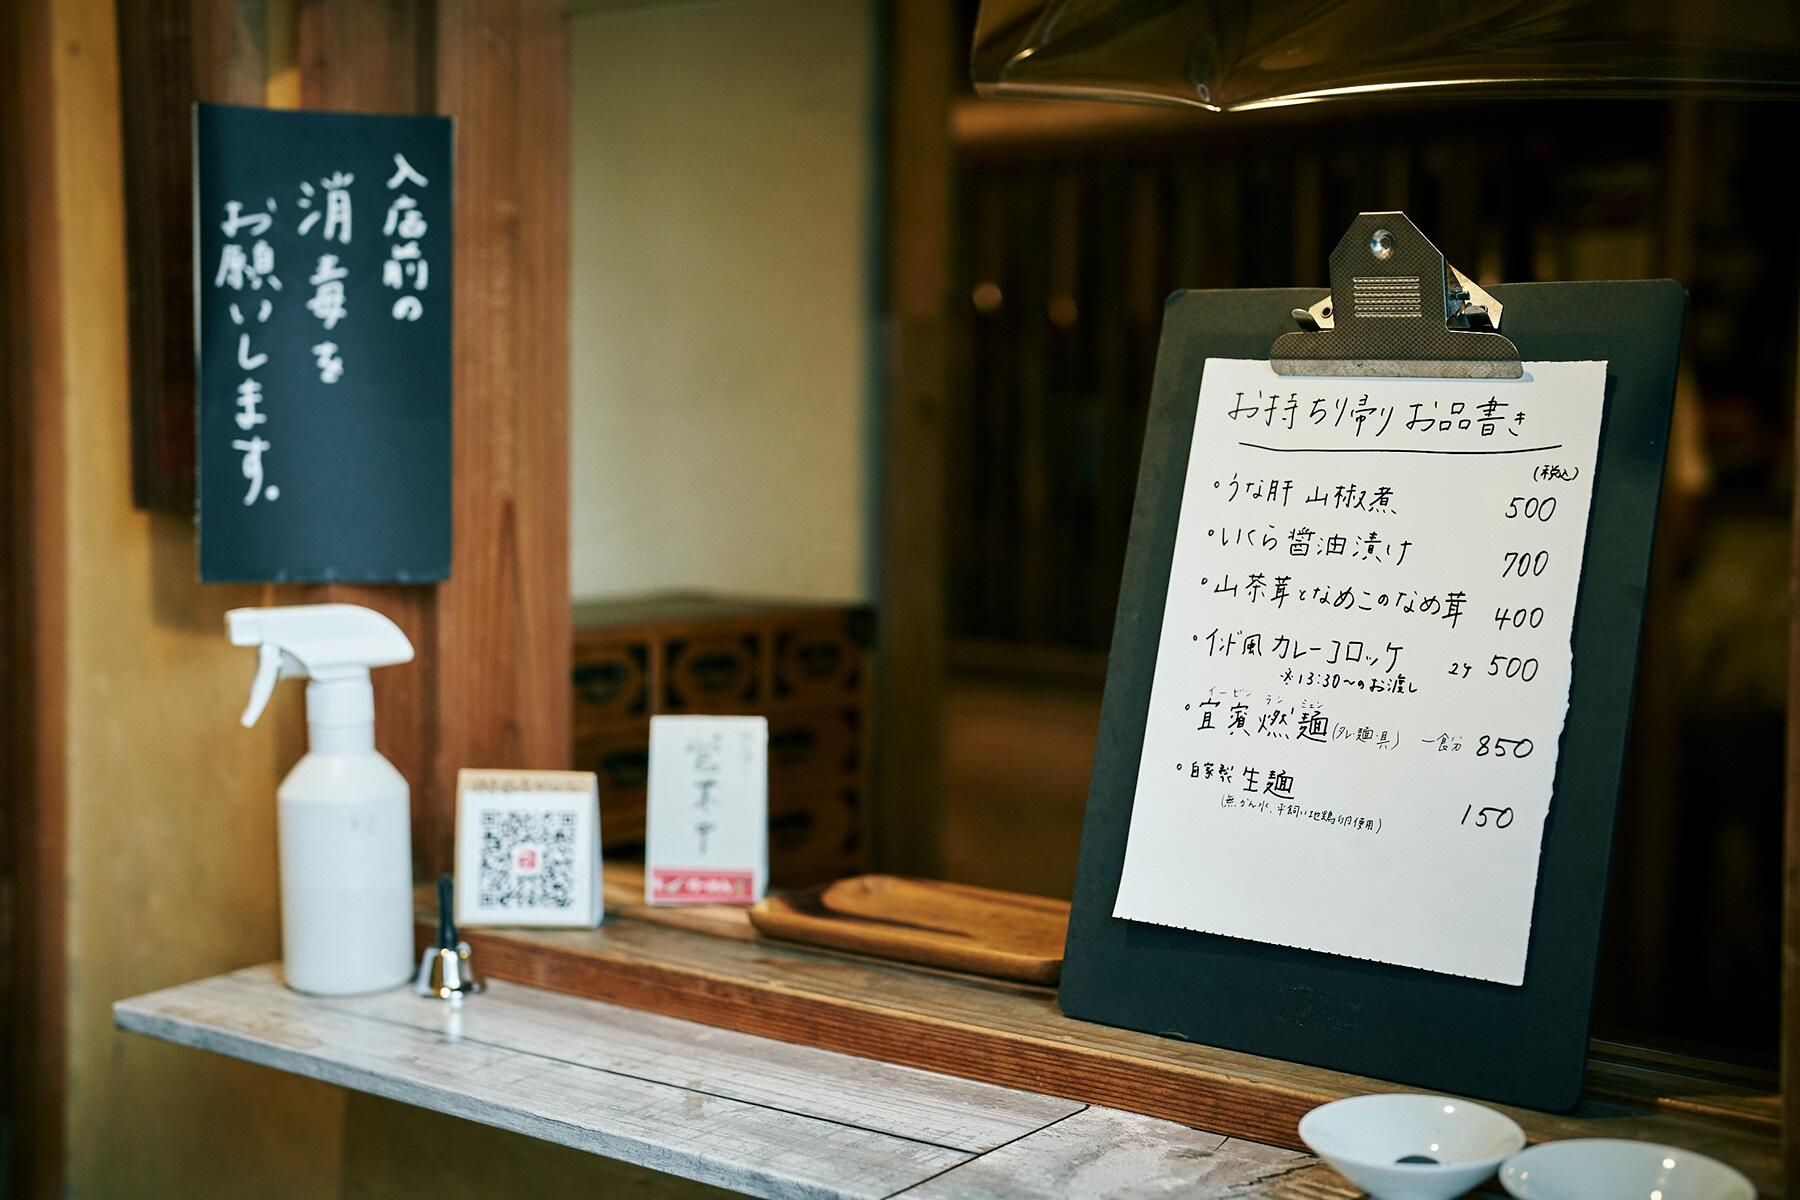 入店前の
消毒を
お願いします。
お持ち帰り お品書き
(税込)
・うな肝 山椒煮 500
・いくら醤油漬け 700
・山茶茸となめこのなめ茸 400
・インド風カレーコロッケ 2ケ 500
※13:30〜のお渡し
イービン ラン ミェン
・宜賓燃麺(タレ・麺・具) 一食分 850
・自家製 生麺 150
(無かん水、平飼い地鶏卵使用)